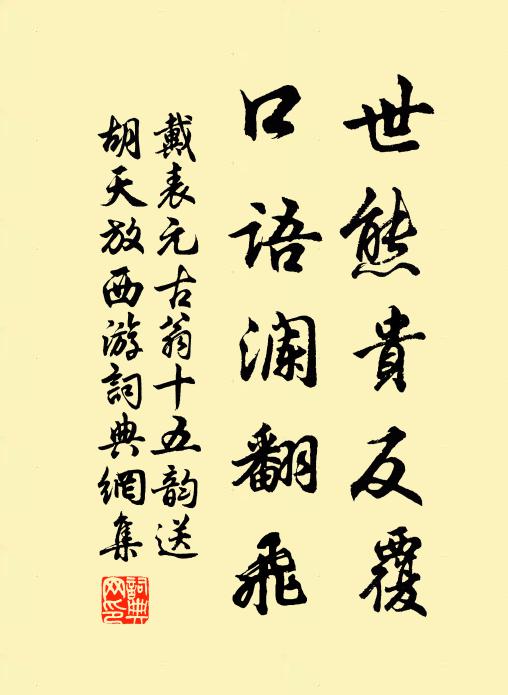 世熊貴反覆
口語澜翻飛
戴表元古翁十五韵送
胡天放西游詞典網集
詞典網印